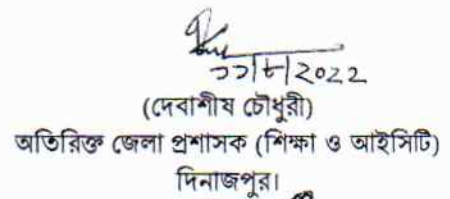 ১১/৮/2022
(দেবাশীষ চৌধুরী)
অতিরিক্ত জেলা প্রশাসক (শিক্ষা ও আইসিটি)
দিনাজপুর।